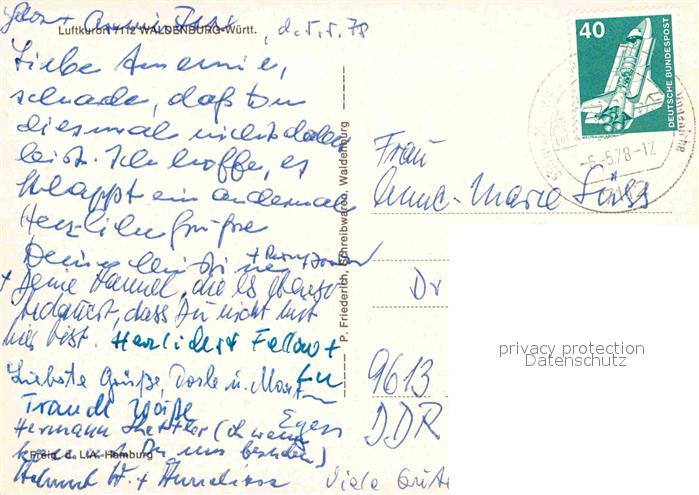 Luftkurort 7112 WALDENBURG-Württ.
d. 5.5.78
Liebe Annemie,
schade, daß Du
diesmal nicht dabei
bist. Ich hoffe, es
klappt ein andermal
Herzliche Grüße
Deine
+ Deine Hannel, die es ebenso
bedauert, dass Du nicht mit
hier bist. Herzlichst
Liebste Grüße, Dorle u.
Traudl
Hermann
kommst Du uns besuchen)
Helmut W. + Anneliese
Freig. d. LA. Hamburg
P. Friederich, Schreibwaren, Waldenburg
40
DEUTSCHE BUNDESPOST
-6.-5.78-12
7112
Frau
Anne-Marie Süß
Dr
9613
DDR
Viele Grüße
privacy protection
Datenschutz